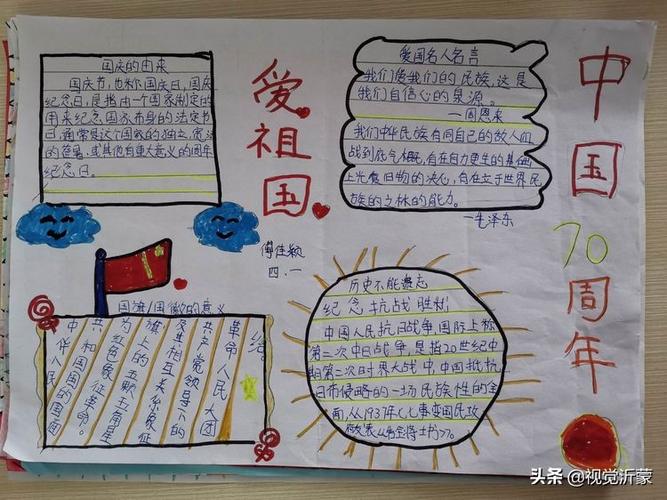 国庆的由来
国庆节,也称国庆日,国庆
纪念日,是指由一个国家制定的
用来纪念国家本身的法定节
日,通常是这个国家的独立、宪法
的签署、或其他有重大意义的周年
纪念日。
爱祖国
爱国名人名言
我们爱我们的民族,这是
我们自信心的泉源。
—周恩来
我们中华民族有同自己的敌人血
战到底气概,有在自力更生的基础
上光复旧物的决心,有在立于世界民
族的之林的能力。
—毛泽东
中国70周年
傅佳颖
四.一
国旗/国徽的意义
中华人民
共和国国的国面
为红色象征革命。
旗上的五颗五角星
及其相互关系象征
共产党领导下的
革命人民大团
历史不能遗忘
纪念抗战胜利
中国人民抗日战争,国际上称
第二次中日战争,是指20世纪中
期第二次世界大战中,中国抵抗
日本侵略的一场民族性的全
面,从1937年七七事变国民政
头条@视觉沂蒙